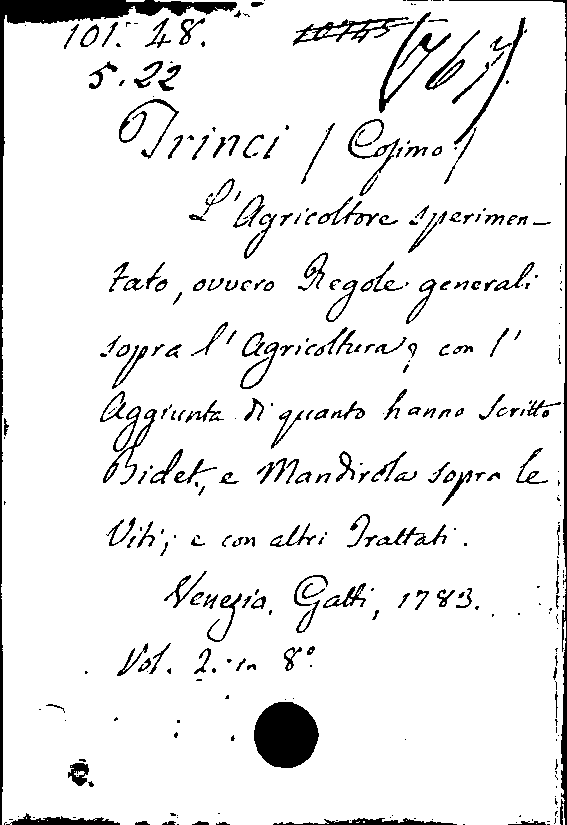 101. 48.
5.22
Trinci / Cosimo /
L'Agricoltore sperimen-
tato, ovvero Regole generali
sopra l'Agricoltura; con l'
Aggiunta di quanto hanno scritto
Bidet, e Mandirola sopra le
Viti; e con altri Trattati.
Venezia. Gatti, 1783.
Vol. 2. in 8º